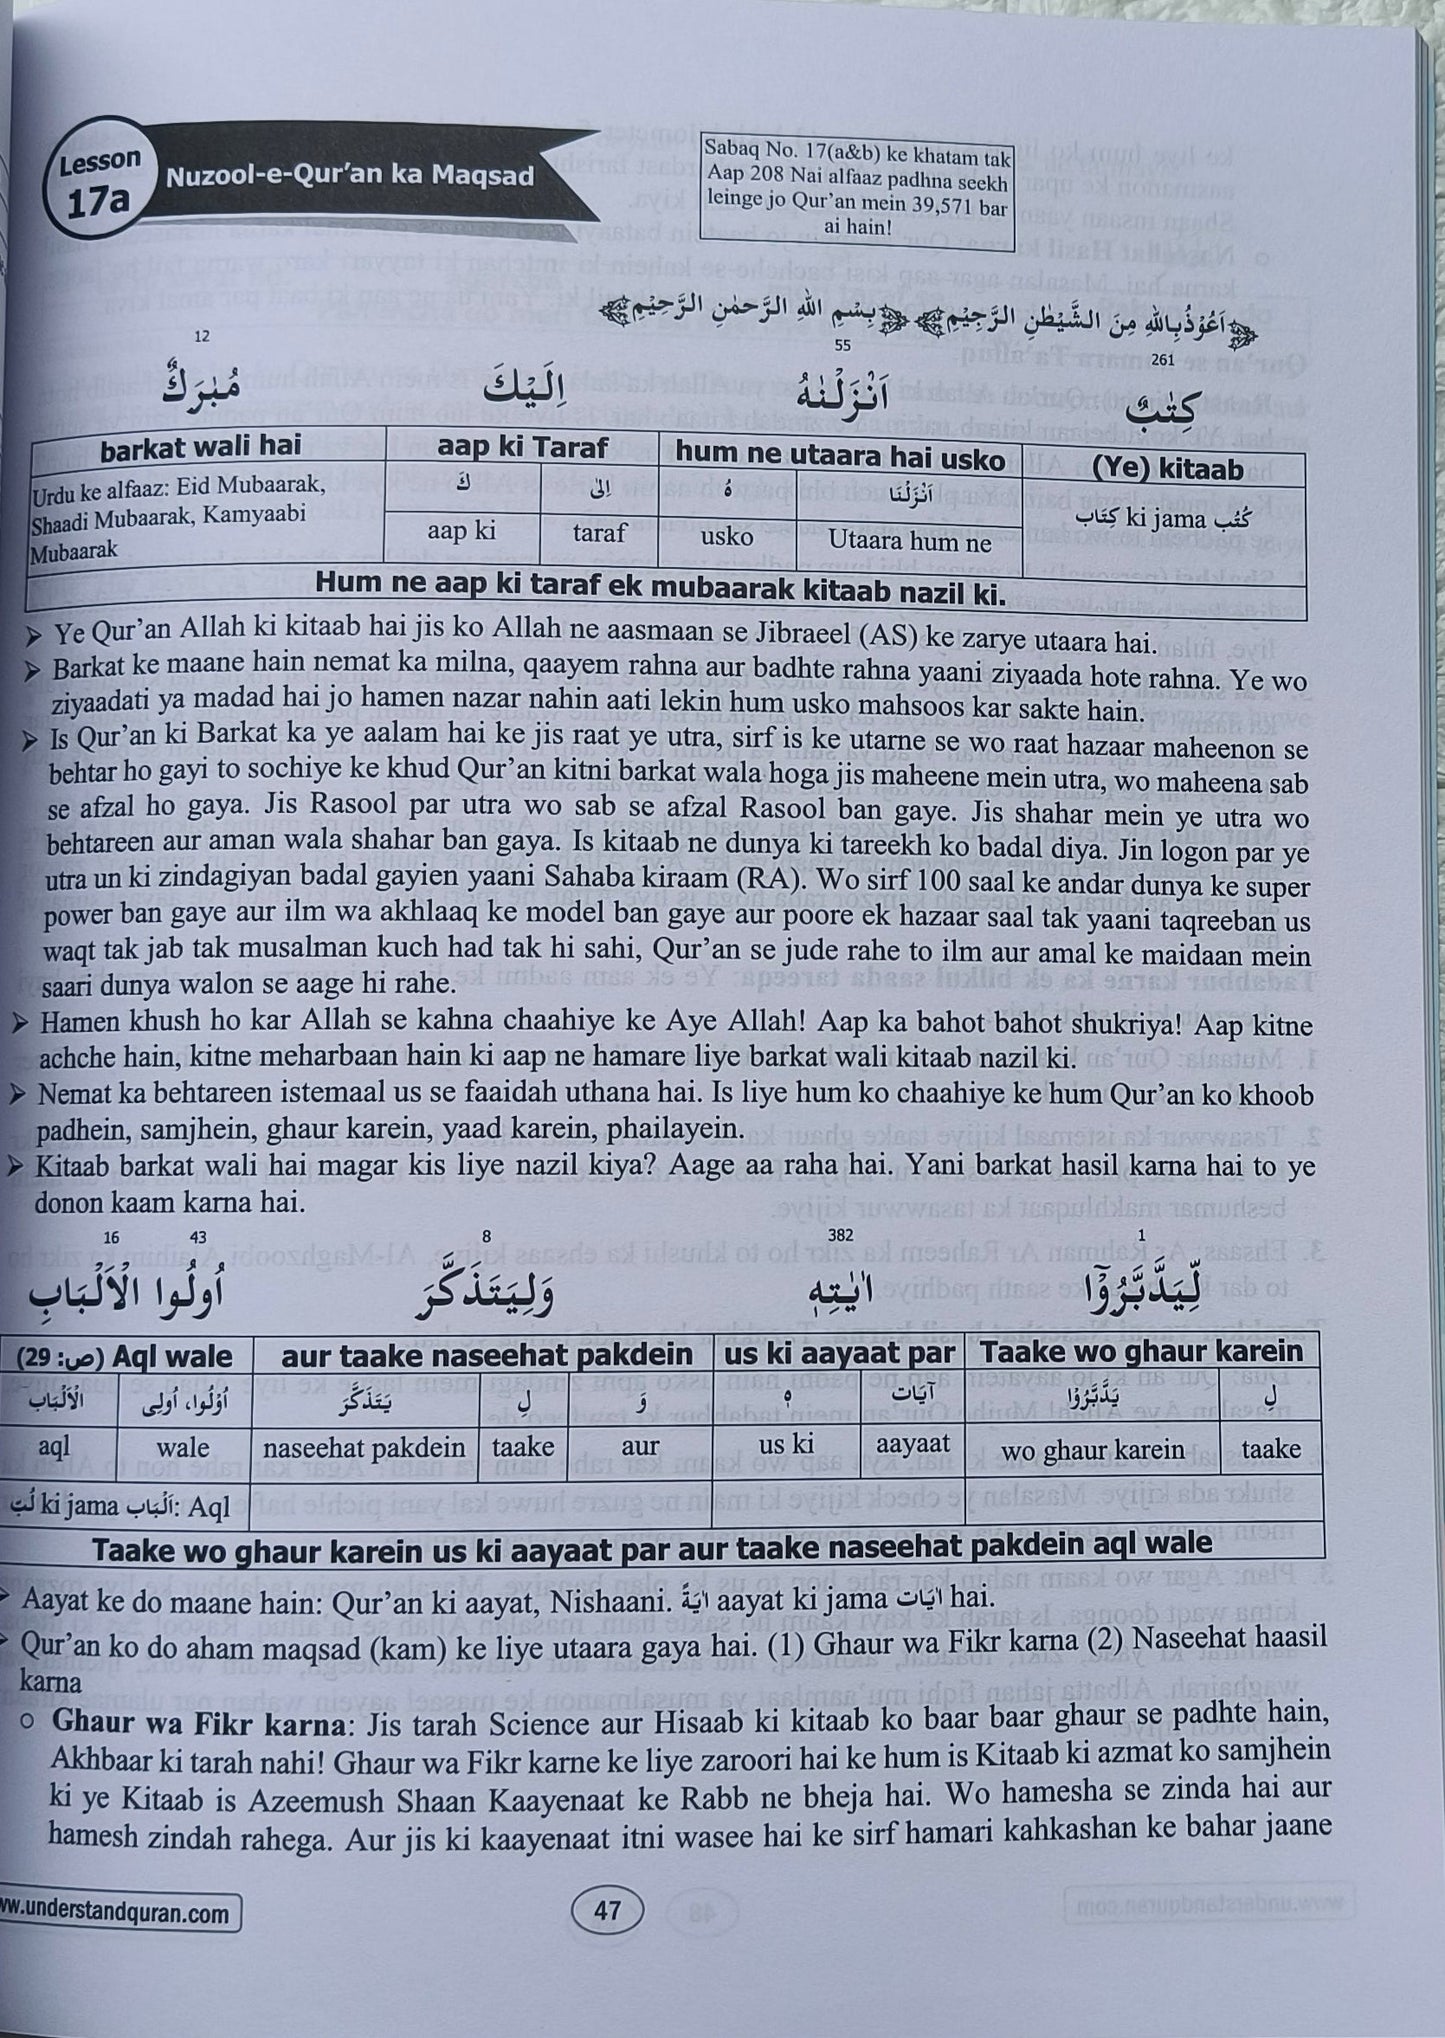 Lesson
17a
Nuzool-e-Qur'an ka Maqsad
Sabaq No. 17(a&b) ke khatam tak
Aap 208 Nai alfaaz padhna seekh
leinge jo Qur'an mein 39,571 bar
ai hain!
اَعُوْذُ بِاللّٰهِ مِنَ الشَّيْطٰنِ الرَّجِيْمِ بِسْمِ اللّٰهِ الرَّحْمٰنِ الرَّحِيْمِ
261 55 12
كِتٰبٌ اَنْزَلْنٰهُ اِلَيْكَ مُبٰرَكٌ
(Ye) kitaab hum ne utaara hai usko aap ki Taraf barkat wali hai
كِتَاب ki jama كُتُب
اَنْزَلْنَا هُ اِلىٰ كَ
Utaara hum ne usko taraf aap ki
Urdu ke alfaaz: Eid Mubaarak,
Shaadi Mubaarak, Kamyaabi
Mubaarak
Hum ne aap ki taraf ek mubaarak kitaab nazil ki.
➤ Ye Qur'an Allah ki kitaab hai jis ko Allah ne aasmaan se Jibraeel (AS) ke zarye utaara hai.
➤ Barkat ke maane hain nemat ka milna, qaayem rahna aur badhte rahna yaani ziyaada hote rahna. Ye wo
ziyaadati ya madad hai jo hamen nazar nahin aati lekin hum usko mahsoos kar sakte hain.
➤ Is Qur'an ki Barkat ka ye aalam hai ke jis raat ye utra, sirf is ke utarne se wo raat hazaar maheenon se
behtar ho gayi to sochiye ke khud Qur'an kitni barkat wala hoga jis maheene mein utra, wo maheena sab
se afzal ho gaya. Jis Rasool par utra wo sab se afzal Rasool ban gaye. Jis shahar mein ye utra wo
behtareen aur aman wala shahar ban gaya. Is kitaab ne dunya ki tareekh ko badal diya. Jin logon par ye
utra un ki zindagiyan badal gayien yaani Sahaba kiraam (RA). Wo sirf 100 saal ke andar dunya ke super
power ban gaye aur ilm wa akhlaaq ke model ban gaye aur poore ek hazaar saal tak yaani taqreeban us
waqt tak jab tak musalman kuch had tak hi sahi, Qur'an se jude rahe to ilm aur amal ke maidaan mein
saari dunya walon se aage hi rahe.
➤ Hamen khush ho kar Allah se kahna chaahiye ke Aye Allah! Aap ka bahot bahot shukriya! Aap kitne
achche hain, kitne meharbaan hain ki aap ne hamare liye barkat wali kitaab nazil ki.
➤ Nemat ka behtareen istemaal us se faaidah uthana hai. Is liye hum ko chaahiye ke hum Qur'an ko khoob
padhein, samjhein, ghaur karein, yaad karein, phailayein.
➤ Kitaab barkat wali hai magar kis liye nazil kiya? Aage aa raha hai. Yani barkat hasil karna hai to ye
donon kaam karna hai.
1 382 8 43 16
لِّيَدَّبَّرُوْٓا اٰيٰتِهٖ وَلِيَتَذَكَّرَ اُولُوا الْاَلْبَابِ
Taake wo ghaur karein us ki aayaat par aur taake naseehat pakdein Aql wale (ص: 29)
لِ يَدَّبَّرُوْا آيَات هٖ وَ لِ يَتَذَكَّرَ اُوْلُوا، اُولِى الْاَلْبَابِ
taake wo ghaur karein aayaat us ki aur taake naseehat pakdein wale aql
لُبّ ki jama اَلْبَاب: Aql
Taake wo ghaur karein us ki aayaat par aur taake naseehat pakdein aql wale
➤ Aayat ke do maane hain: Qur'an ki aayat, Nishaani. اٰيَةٌ aayat ki jama اٰيَات hai.
➤ Qur'an ko do aham maqsad (kam) ke liye utaara gaya hai. (1) Ghaur wa Fikr karna (2) Naseehat haasil
karna
o Ghaur wa Fikr karna: Jis tarah Science aur Hisaab ki kitaab ko baar baar ghaur se padhte hain,
Akhbaar ki tarah nahi! Ghaur wa Fikr karne ke liye zaroori hai ke hum is Kitaab ki azmat ko samjhein
ki ye Kitaab is Azeemush Shaan Kaayenaat ke Rabb ne bheja hai. Wo hamesha se zinda hai aur
hamesh zindah rahega. Aur jis ki kaayenaat itni wasee hai ke sirf hamari kahkashan ke bahar jaane
ww.understandquran.com
47